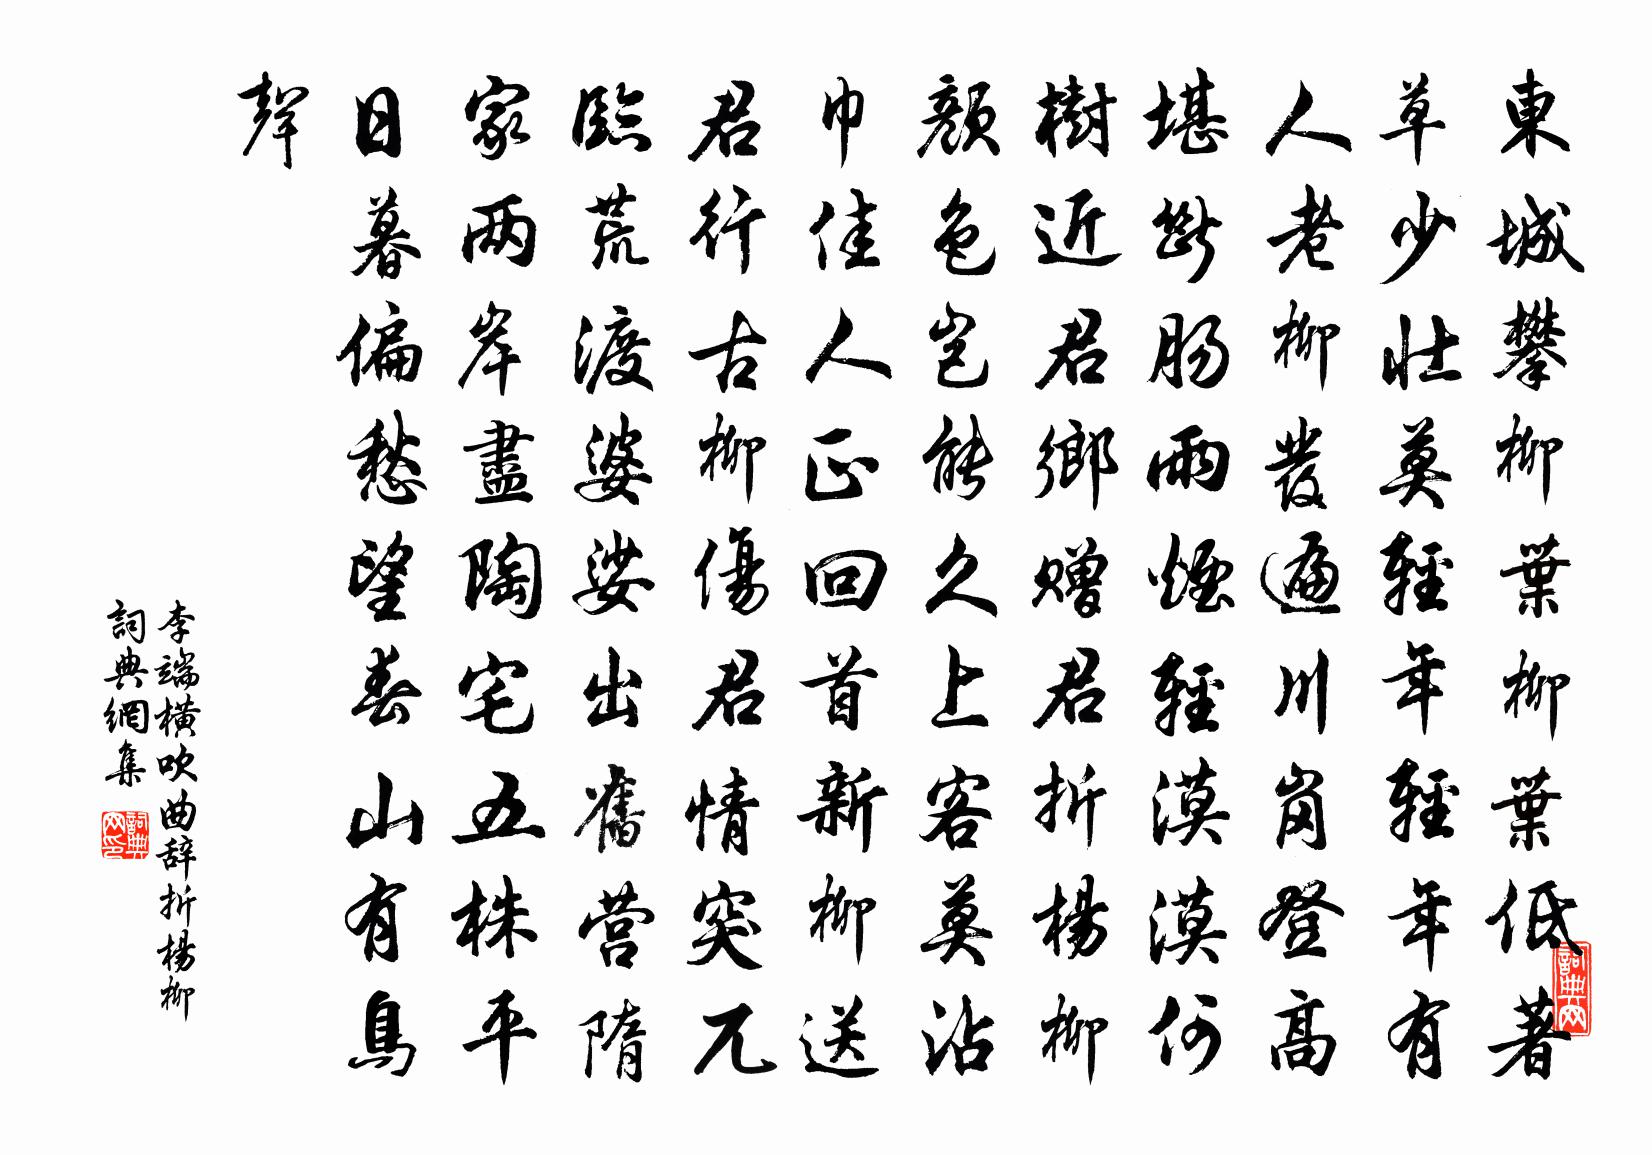 東城攀柳葉柳葉低著
草少壯莫輕年輕年有
人老柳發遍川岡登高
堪斷腸雨煙輕漠漠何
樹近君鄉贈君折楊柳
顏色豈能久上客莫沾
巾佳人正回首新柳送
君行古柳傷君情突兀
臨荒渡婆娑出舊营隋
家两岸盡陶宅五株平
日暮偏愁望春山有鳥
聲
李端橫吹曲辞折楊柳
詞典網集
詞典网印
詞典网